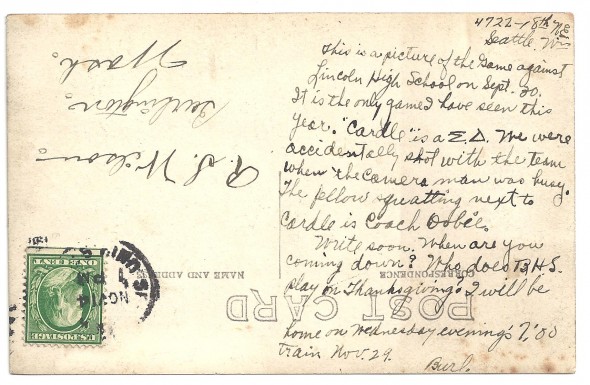 4722-18th N.E.
Seattle, Wn
This is a picture of the Game against
Lincoln High School on Sept. 30.
It is the only game I have seen this
year. "Cardle" is a Σ.Δ. We were
accidentally shot with the team
when the camera man was busy.
The fellow squatting next to
Cardle is Coach Dobie.
Write soon. When are you
coming down? Who does B.H.S.
play on Thanksgiving? I will be
home on Wednesday evening's 7:00
train Nov. 29.
Burl.
R. S. Wilson.
Burlington,
Wash.
POST CARD
CORRESPONDENCE
NAME AND ADDRESS
NOV 14
PM
U.S. POSTAGE
ONE CENT